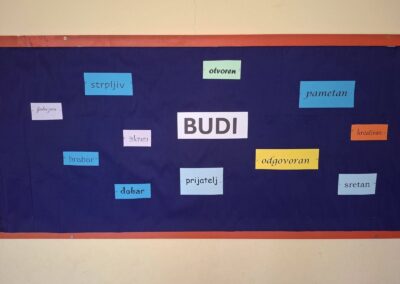 otvoren
strpljiv
pametan
ljubazan
BUDI
iskren
kreativan
hrabar
odgovoran
dobar
prijatelj
sretan